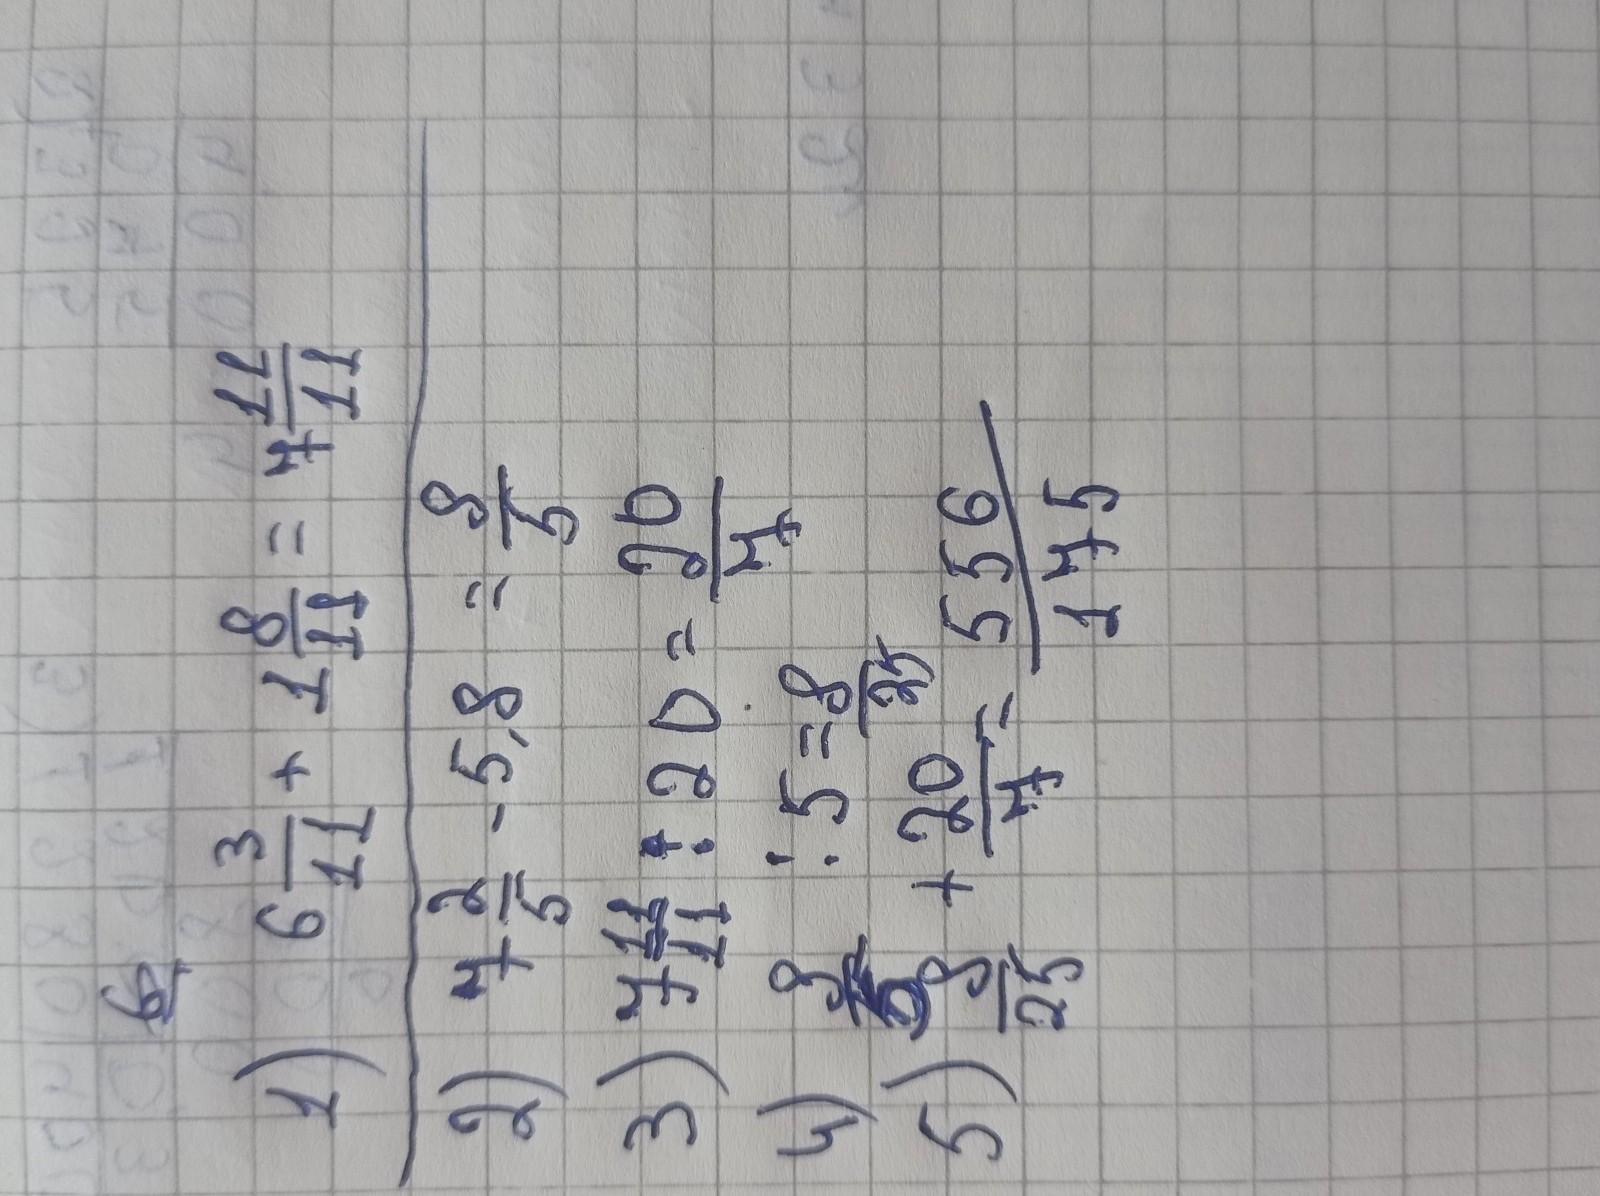 6
1) 6 3/11 + 1 8/11 = 7 11/11
2) 7 2/5 - 5,8 = 8/5
3) 7 11/11 : 20 = 20/7
4) 8/5 : 5 = 8/25
5) 8/25 + 20/7 = 556/175